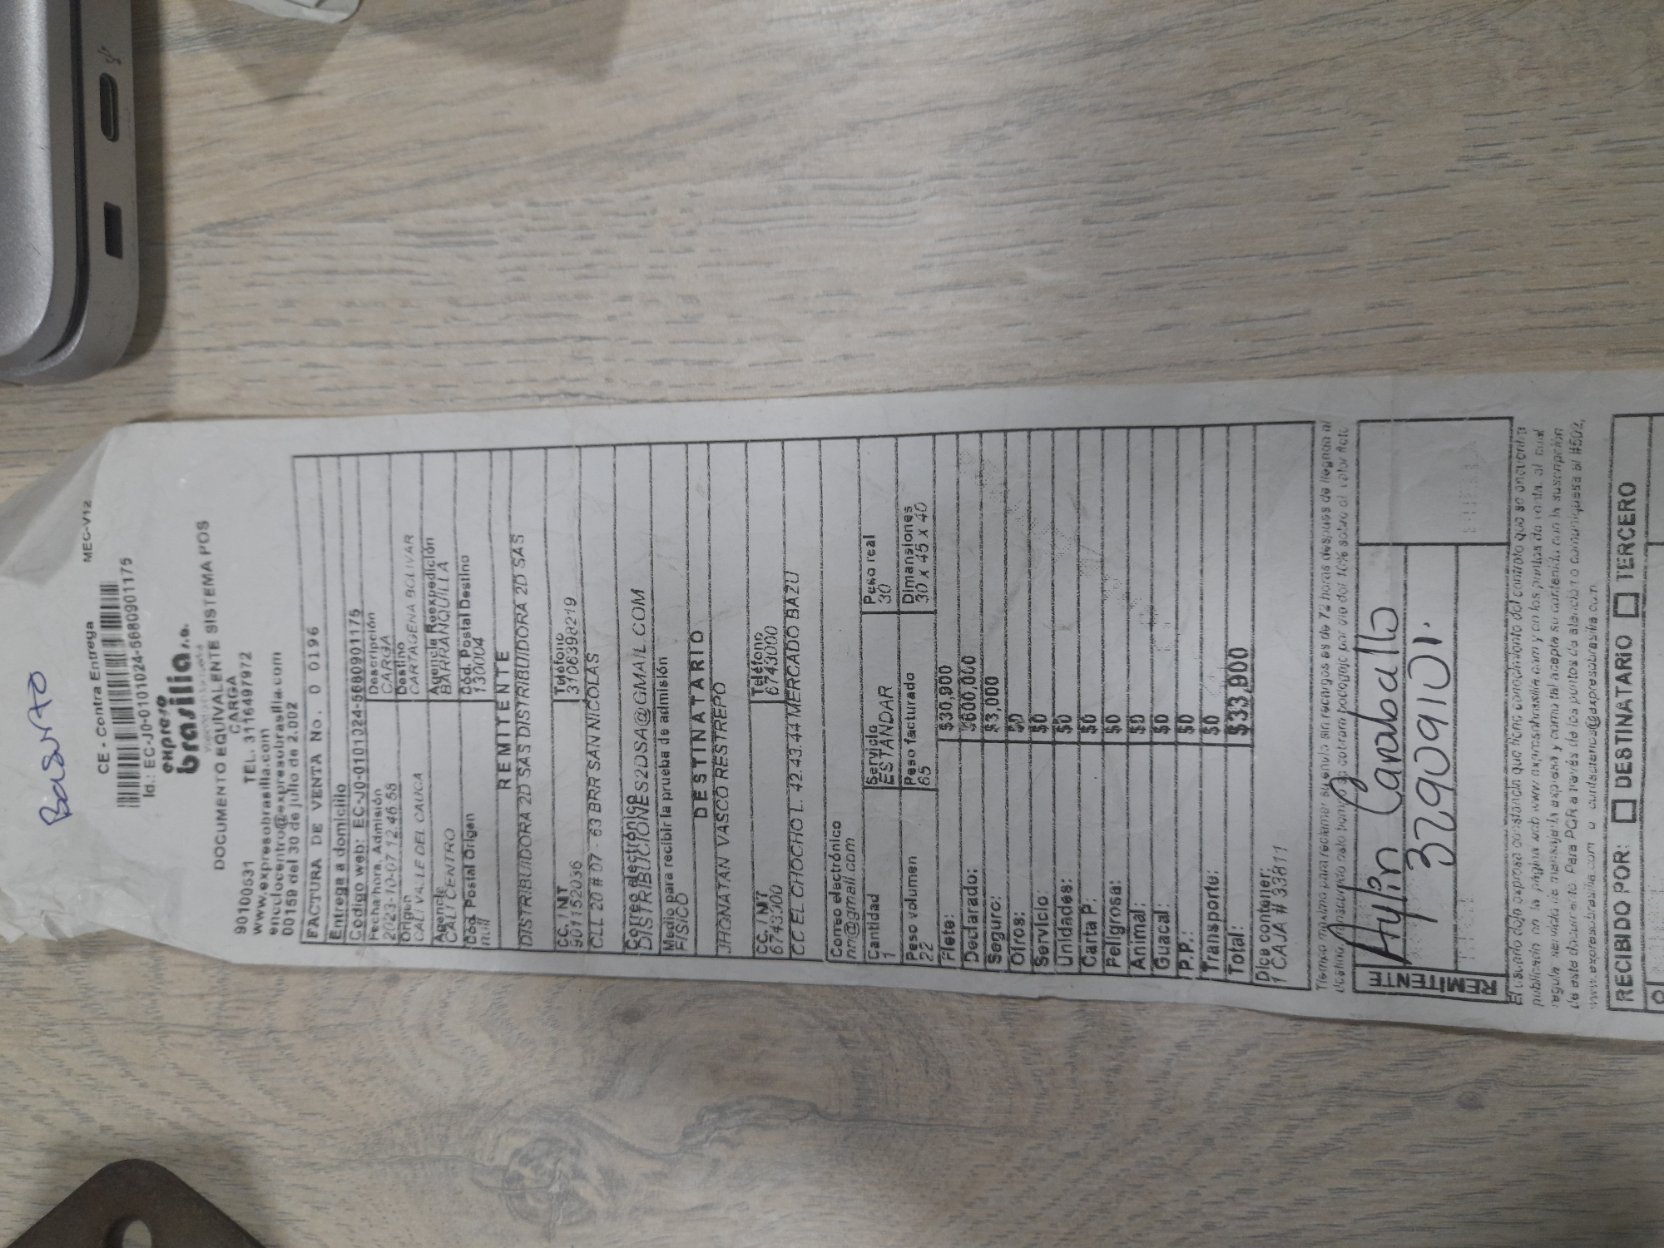 Basurto
CE - Contra Entrega MEC-V12
Id.: EC-J0-0101024-5680901175
expreso
brasilia s.a.
DOCUMENTO EQUIVALENTE SISTEMA POS
CARGA
90100531 TEL. 3116497972
www.expresobrasilia.com
encolocentro@expresobrasilia.com
00159 del 30 de julio de 2.002
FACTURA DE VENTA No. 0 0196
Entrega a domicilio
Código web: EC-J0-0101024-5680901175
Fecha/hora Admisión Descripción
2023-10-07 12:46:55 CARGA
Origen Destino
CALI VALLE DEL CAUCA CARTAGENA BOLIVAR
Agencia Agencia Reexpedición
CALI CENTRO BARRANQUILLA
Cód. Postal Origen Cód. Postal Destino
null 130004
REMITENTE
DISTRIBUIDORA 2D SAS DISTRIBUIDORA 2D SAS
CC. / NIT Teléfono
901152036 3106398219
CLL 20 # 07 - 63 BRR SAN NICOLAS
Correo electrónico
DISTRIBUCIONES2DSA@GMAIL.COM
Medio para recibir la prueba de admisión
FISICO
DESTINATARIO
JHONATAN VASCO RESTREPO
CC. / NIT Teléfono
6743000 6743000
CC EL CHOCHO L. 42.43.44 MERCADO BAZU
Correo electrónico
nn@gmail.com
Cantidad Servicio Peso real
1 ESTANDAR 30
Peso volumen Peso facturado Dimansiones
22 65 30 x 45 x 40
Flete: $30,900
Declarado: $600,000
Seguro: $3,000
Otros: $0
Servicio: $0
Unidades: $0
Carta P.: $0
Peligrosa: $0
Animal: $0
Guacal: $0
P.P.: $0
Transporte: $0
Total: $33,900
Dice contener:
1 CAJA # 33811
Tiempo máximo para reclamar su envío sin recargos es de 72 horas después de llegado al
REMITENTE
Aylin Caraballo
32909101.
El usuario deja expresa constancia que tiene conocimiento del contrato que se encuentra
publicado en la página web www.expresobrasilia.com y en los puntos de venta, el cual
regula servicio de mensajería expresa y como tal acepta su contenido con la suscripción
de este documento. Para PQR a través de los puntos de atención o comuníquese al #502,
www.expresobrasilia.com o contactenos@expresobrasilia.com
RECIBIDO POR: DESTINATARIO TERCERO